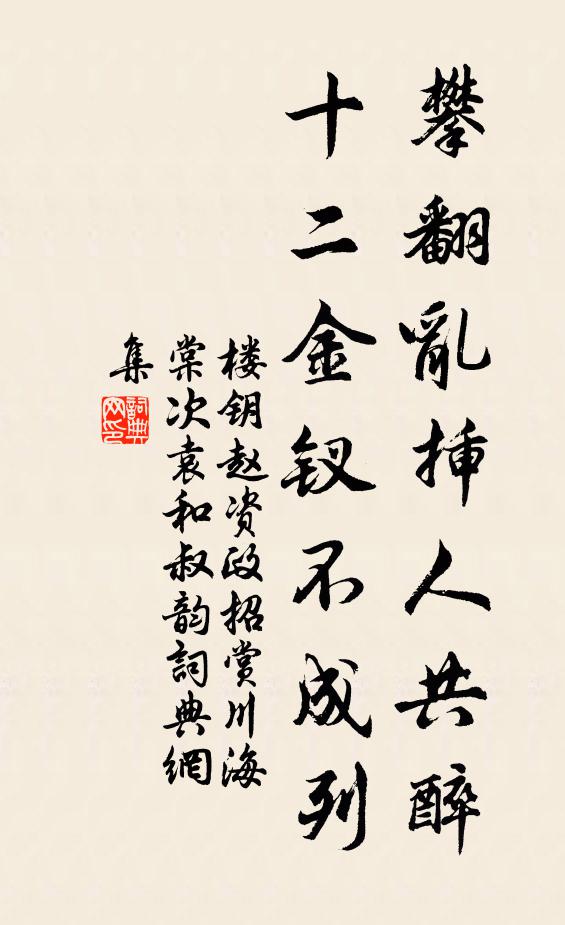 攀翻亂挿人共醉
十二金钗不成列
楼钥赵资政招赏川海
棠次袁和叔韵詞典網
集
詞典
网印